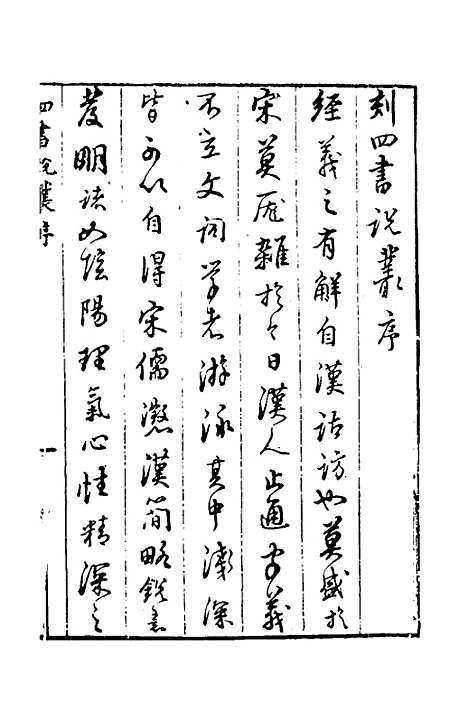 刻四書說叢序
經義之有解自漢詁訪也莫盛於
宋莫厖雜於今日漢人止通字義
不立文詞學者游泳其中淺深
皆可以自得宋儒懲漢簡略銳意
發明諸如陰陽理氣心性精深之
四書說叢序
一